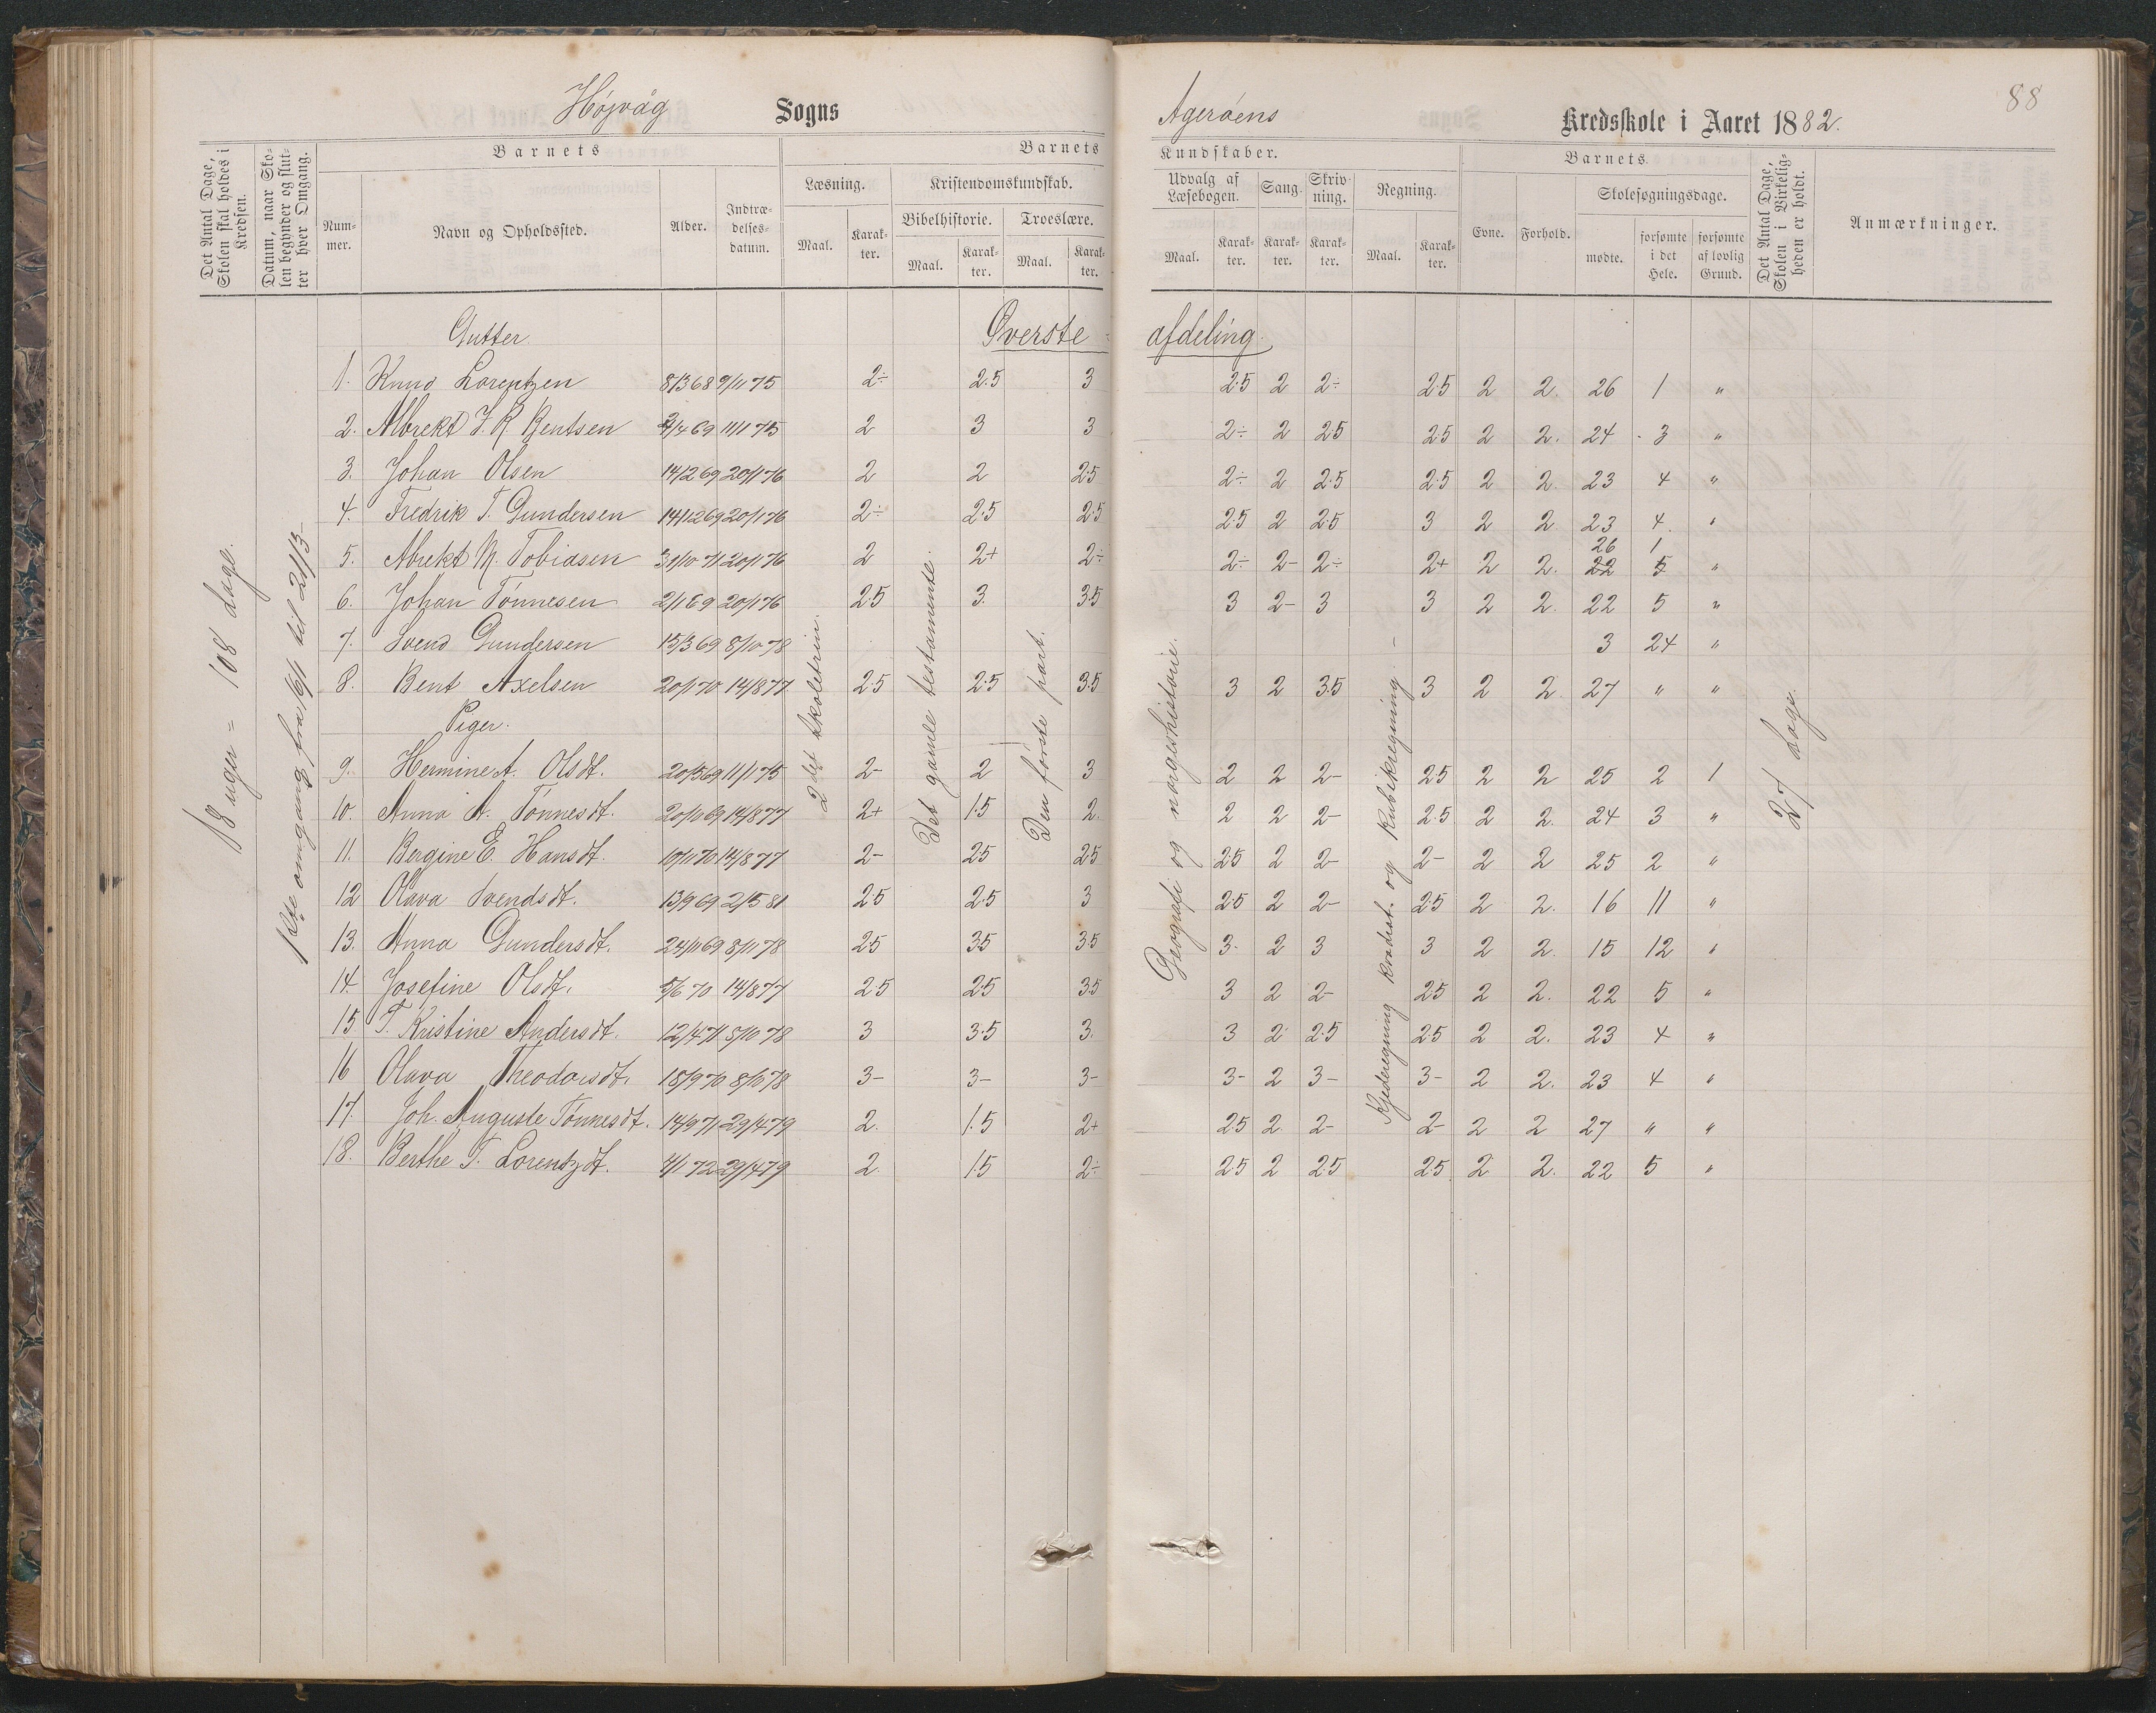 Højvåg Sogns
Agerøens Kredsskole i Aaret 1882.
88
Det Antal Dage, Skolen skal holdes i Kredsen.
Datum, naar Skolen begynder og slutter hver Omgang.
Barnets
Nummer.
Navn og Opholdssted.
Alder.
Indtrædelsesdatum.
Barnets
Læsning.
Maal.
Karakter.
Kristendomskundskab.
Bibelhistorie.
Maal.
Karakter.
Troeslære.
Maal.
Karakter.
Kundskaber.
Udvalg af Læsebogen.
Maal.
Karakter.
Sang.
Karakter.
Skrivning.
Karakter.
Regning.
Maal.
Karakter.
Barnets
Evne.
Forhold.
Skolesøgningsdage.
mødte.
forsømte i det Hele.
forsømte af lovlig Grund.
Det Antal Dage, Skolen i Virkeligheden er holdt.
Anmærkninger.
18 uger = 108 dage.
1ste omgang fra 16/1 til 21/3
2det skoletrin.
Det gamle testamente.
Den første part.
Geografi og norgeshistorie.
Kjederegning kvadrat. og Kubikregning.
27 dage.
Gutter. Øverste afdeling.
1. Knud Lorentzen 8/3 68 9/11 75 2÷ 2.5 3 2.5 2 2÷ 2.5 2 2. 26 1 "
2. Albrekt J. R. Bentsen 2/4 69 11/1 75 2 3 3 2÷ 2 2.5 2.5 2 2. 24 3 "
3. Johan Olsen 14/2 69 20/1 76 2 2 2.5 2÷ 2 2.5 2.5 2 2. 23 4 "
4. Fredrik T. Gundersen 14/12 69 20/1 76 2÷ 2.5 2.5 2.5 2 2.5 3 2 2 23 4. "
26 1
5. Abrekt N. Tobiasen 31/10 71 20/1 76 2 2+ 2÷ 2÷ 2- 2÷ 2+ 2 2. 22 5 "
6. Johan Tønnesen 2/1 69 20/1 76 2.5 3. 3.5 3 2- 3 3 2 2. 22 5 "
7. Svend Gundersen 15/3 69 8/10 78 3 24 "
8. Bent Axelsen 20/1 70 14/8 77 2.5 2.5 3.5 3 2 3.5 3 2 2. 27 " "
Piger.
9. Hermine A. Olsdt. 20/3 69 11/1 75 2- 2 3 2 2 2- 2.5 2 2 25 2 1
10. Anna A. Tønnesdt. 20/10 69 14/8 77 2+ 1.5 2. 2 2 2- 2.5 2 2. 24 3 "
11. Bergine E. Hansdt. 10/11 70 14/8 77 2- 2.5 2.5 2.5 2 2- 2- 2 2 25 2 "
12 Olava Svendsdt. 13/9 69 2/5 81 2.5 2.5 3 2.5 2 2- 2.5 2 2. 16 11 "
13. Anna Gundersdt. 24/11 69 8/11 78 2.5 3.5 3.5 3. 2 3 3 2 2. 15 12 "
14. Josefine Olsdt. 5/6 70 14/8 77 2.5 2.5 3.5 3 2 2- 2.5 2 2. 22 5 "
15. T. Kristine Andersdt. 12/4 71 8/10 78 3 3.5 3. 3 2 2.5 2.5 2 2. 23 4 "
16 Olava Theodorsdt. 18/9 70 8/10 78 3- 3- 3- 3- 2 3- 3- 2 2. 23 4 "
17. Joh. Auguste Tønnesdt. 14/9 71 29/4 79 2. 1.5 2+ 2.5 2 2- 2- 2 2 27 " "
18. Berthe T. Lorentzdt. 4/1 72 29/4 79 2. 1.5 2÷ 2.5 2 2.5 2.5 2 2. 22 5 "